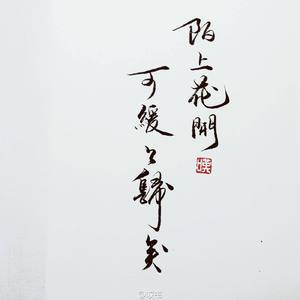 陌上花開
可緩〻歸矣